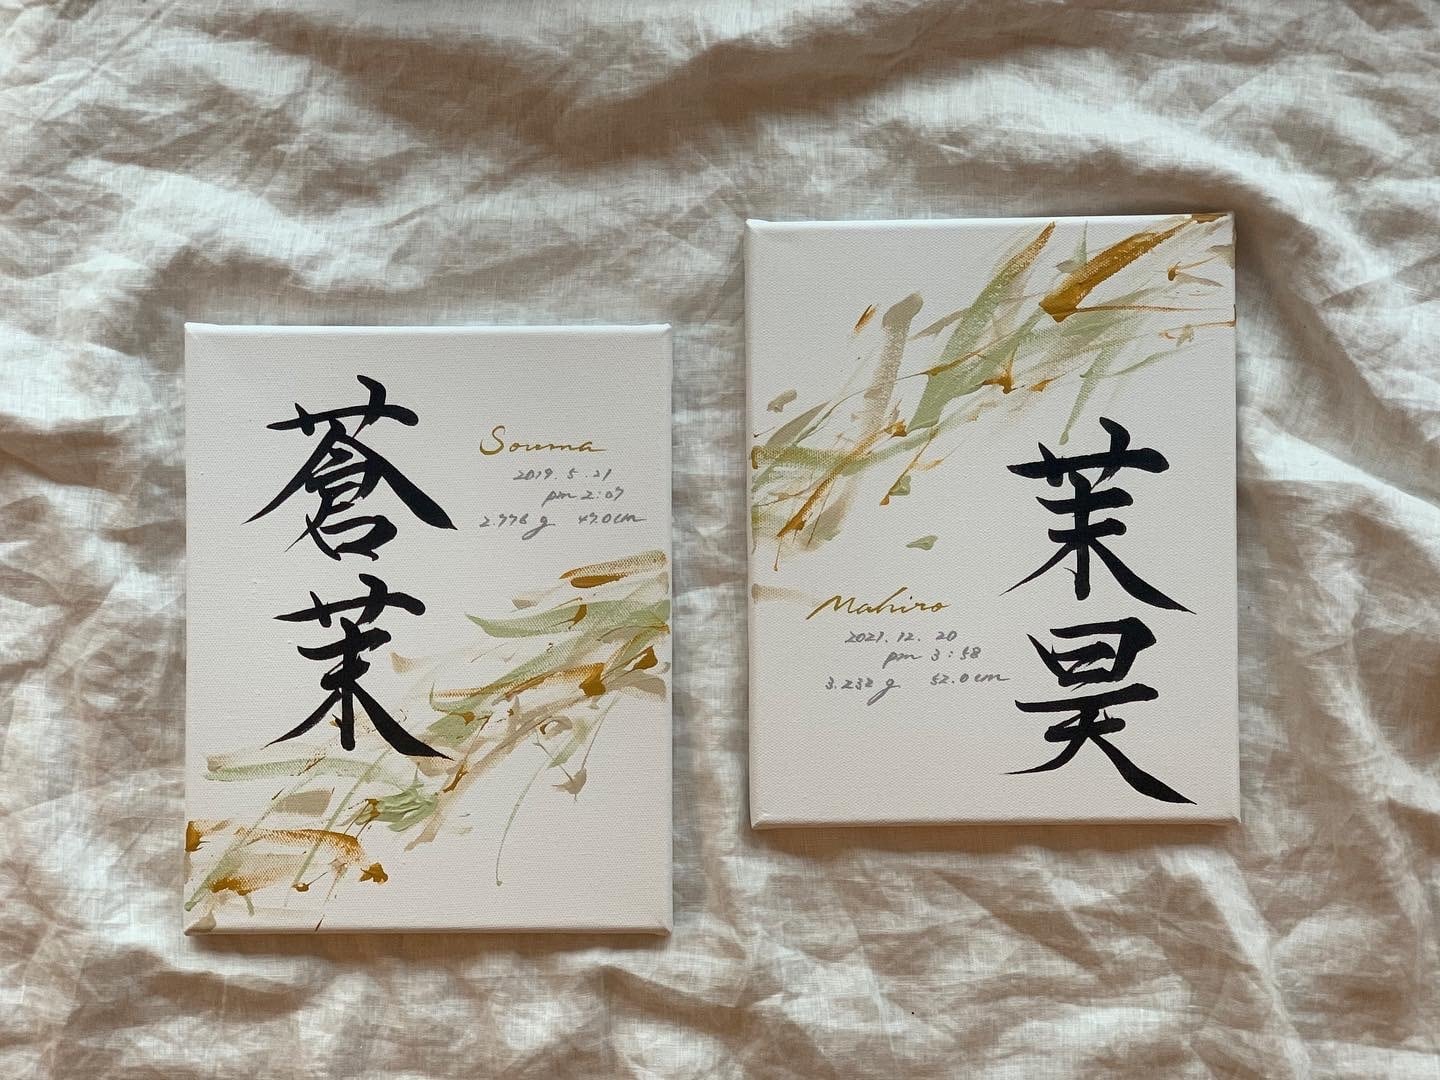 蒼茉
Souma
2019.5.21
pm 2:07
2.776g 47.0cm
茉昊
Mahiro
2021.12.20
pm 3:58
3.232g 52.0cm